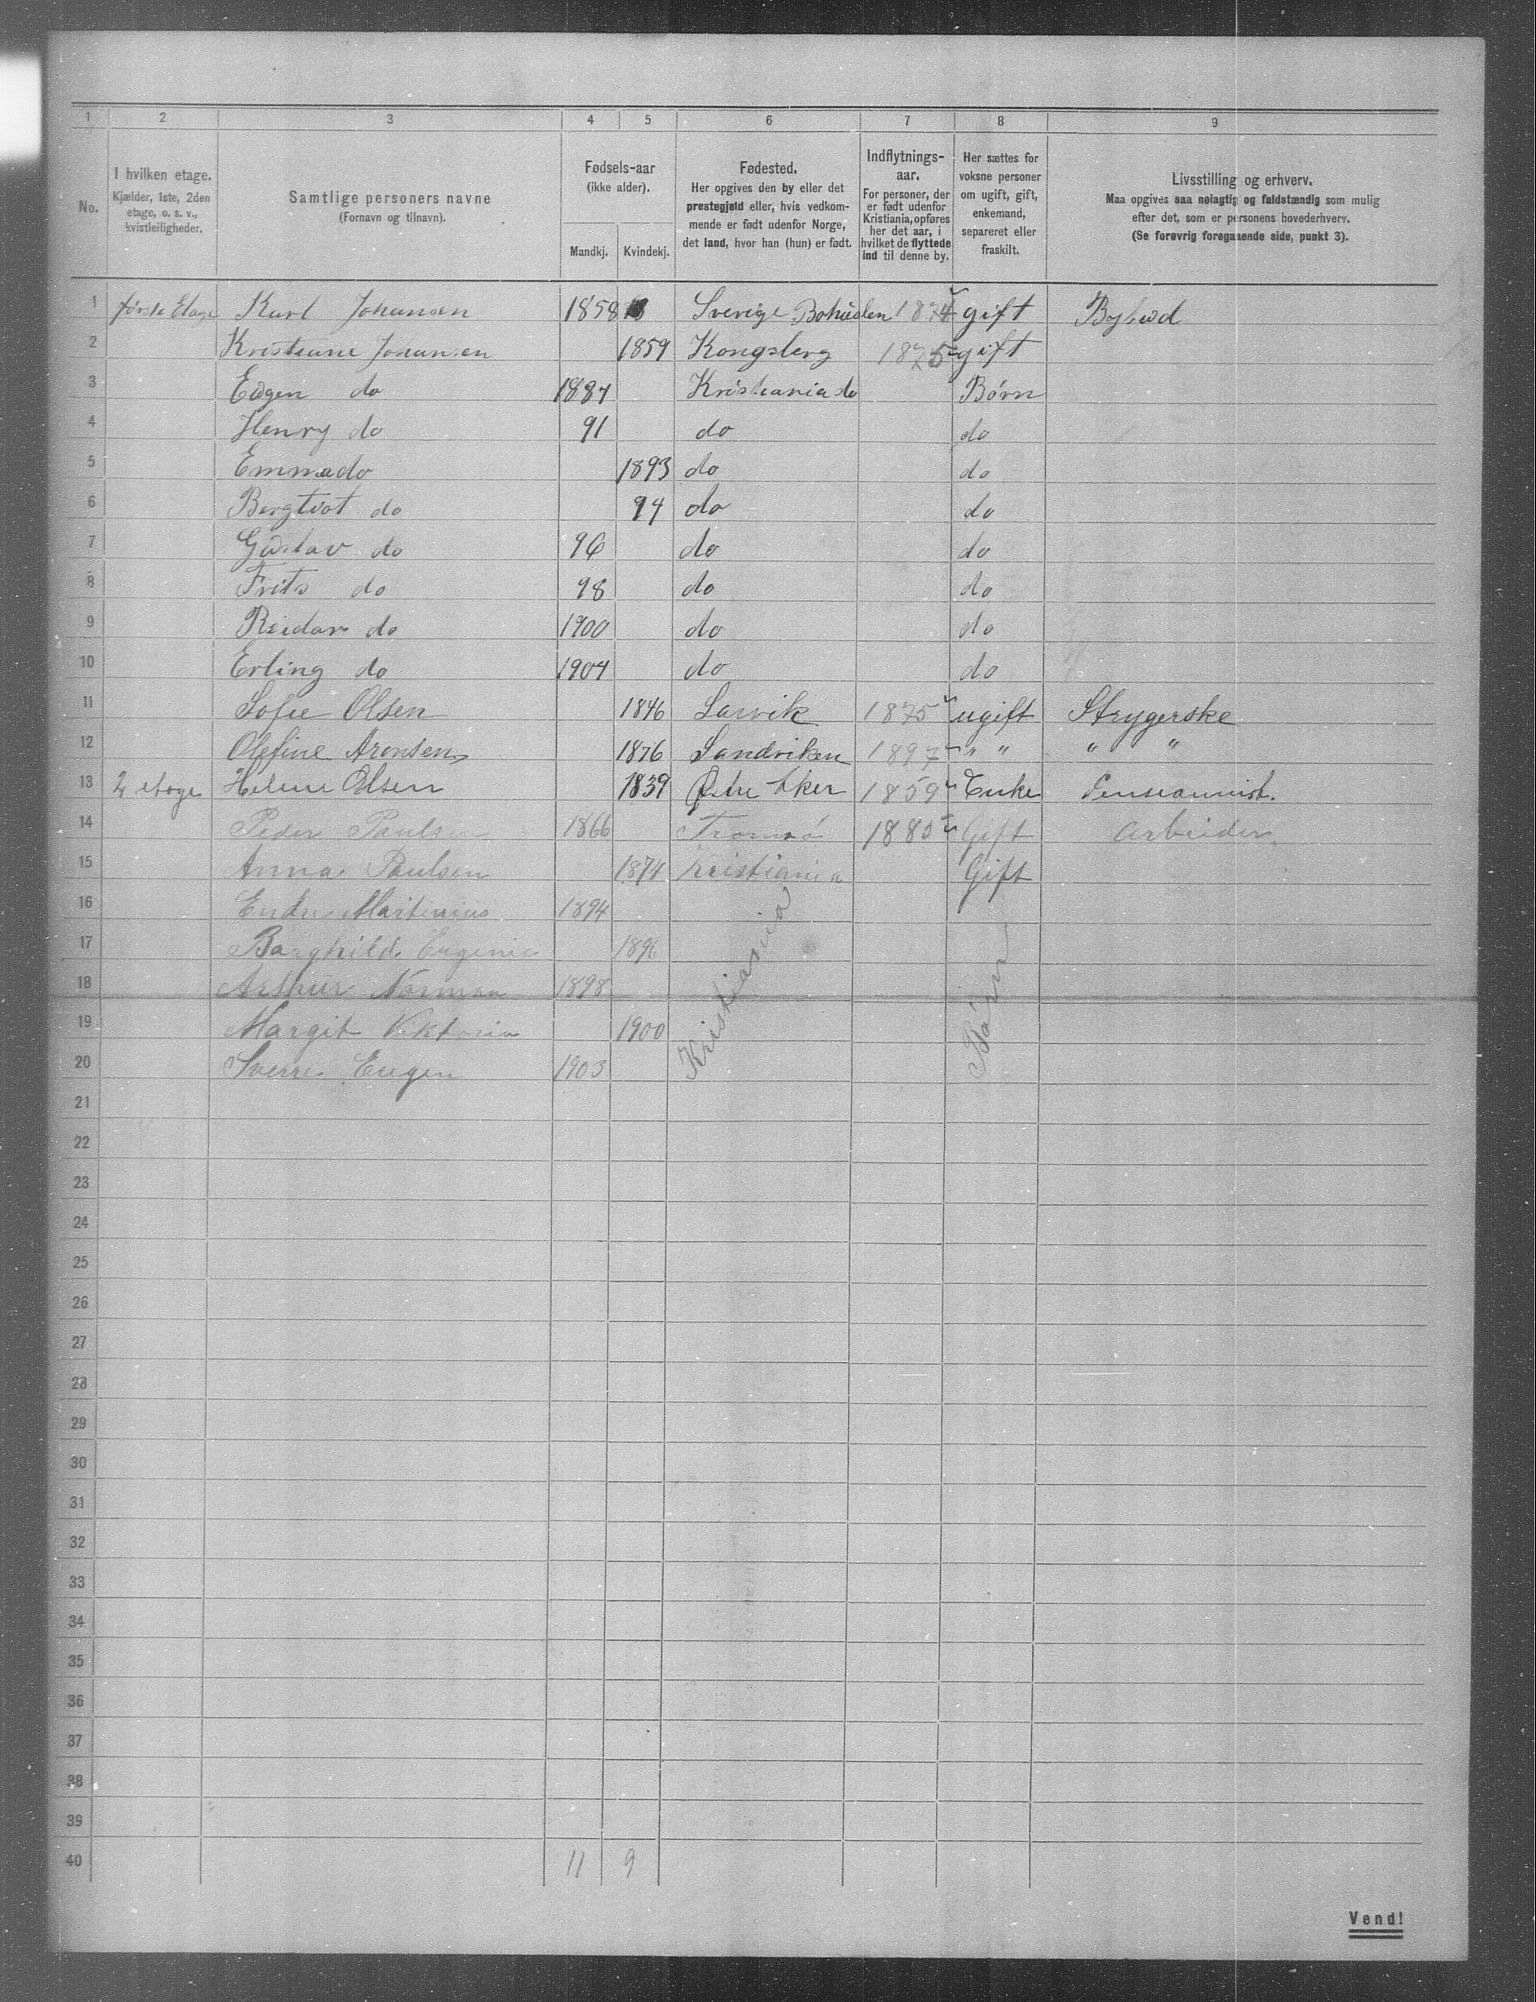 1 2 3 4 5 6 7 8 9
No.
I hvilken etage.
Kjælder, 1ste, 2den
etage, o. s. v.,
kvistleiligheder.
Samtlige personers navne
(Fornavn og tilnavn).
Fødsels-aar
(ikke alder).
Mandkj. Kvindekj.
Fødested.
Her opgives den by eller det
prestegjeld eller, hvis vedkom-
mende er født udenfor Norge,
det land, hvor han (hun) er født.
Indflytnings-
aar.
For personer, der
er født udenfor
Kristiania, opføres
her det aar, i
hvilket de flyttede
ind til denne by.
Her sættes for
voksne personer
om ugift, gift,
enkemand,
separeret eller
fraskilt.
Livsstilling og erhverv.
Maa opgives saa nøiagtig og fuldstændig som mulig
efter det, som er personens hovederhverv.
(Se forøvrig foregaaende side, punkt 3).
1 første Etage Karl Johansen 1858 Sverige Bohuslen 1874 gift
2 Kristiane Johansen 1859 Kongsberg 1875 gift
3 Eugen do 1887 Kristiania do Børn
4 Henry do 91 do do
5 Emma do 1893 do do
6 Bergtvot do 94 do do
7 Gustav do 96 do do
8 Frits do 98 do do
9 Reidar do 1900 do do
10 Erling do 1904 do do
11 Sofie Olsen 1846 Larvik 1875 ugift Strygerske
12 Olefine Aronsen 1876 Sandviken 1897 " " " "
13 2 etage Helene Olsen 1839 Østre Aker 1859 Enke Pensionnist.
14 Peder Paulsen 1866 Tromsø 1885 Gift Arbeider.
15 Anna Paulsen 1874 Kristiania Gift
16 Martinius 1894
17 Borghild Eugenie 1896
18 Arthur Norman 1898
19 Margit Viktoria 1900
20 Sverre Eugen 1903
Kristiania
Børn
21
22
23
24
25
26
27
28
29
30
31
32
33
34
35
36
37
38
39
40 11 9
Vend!